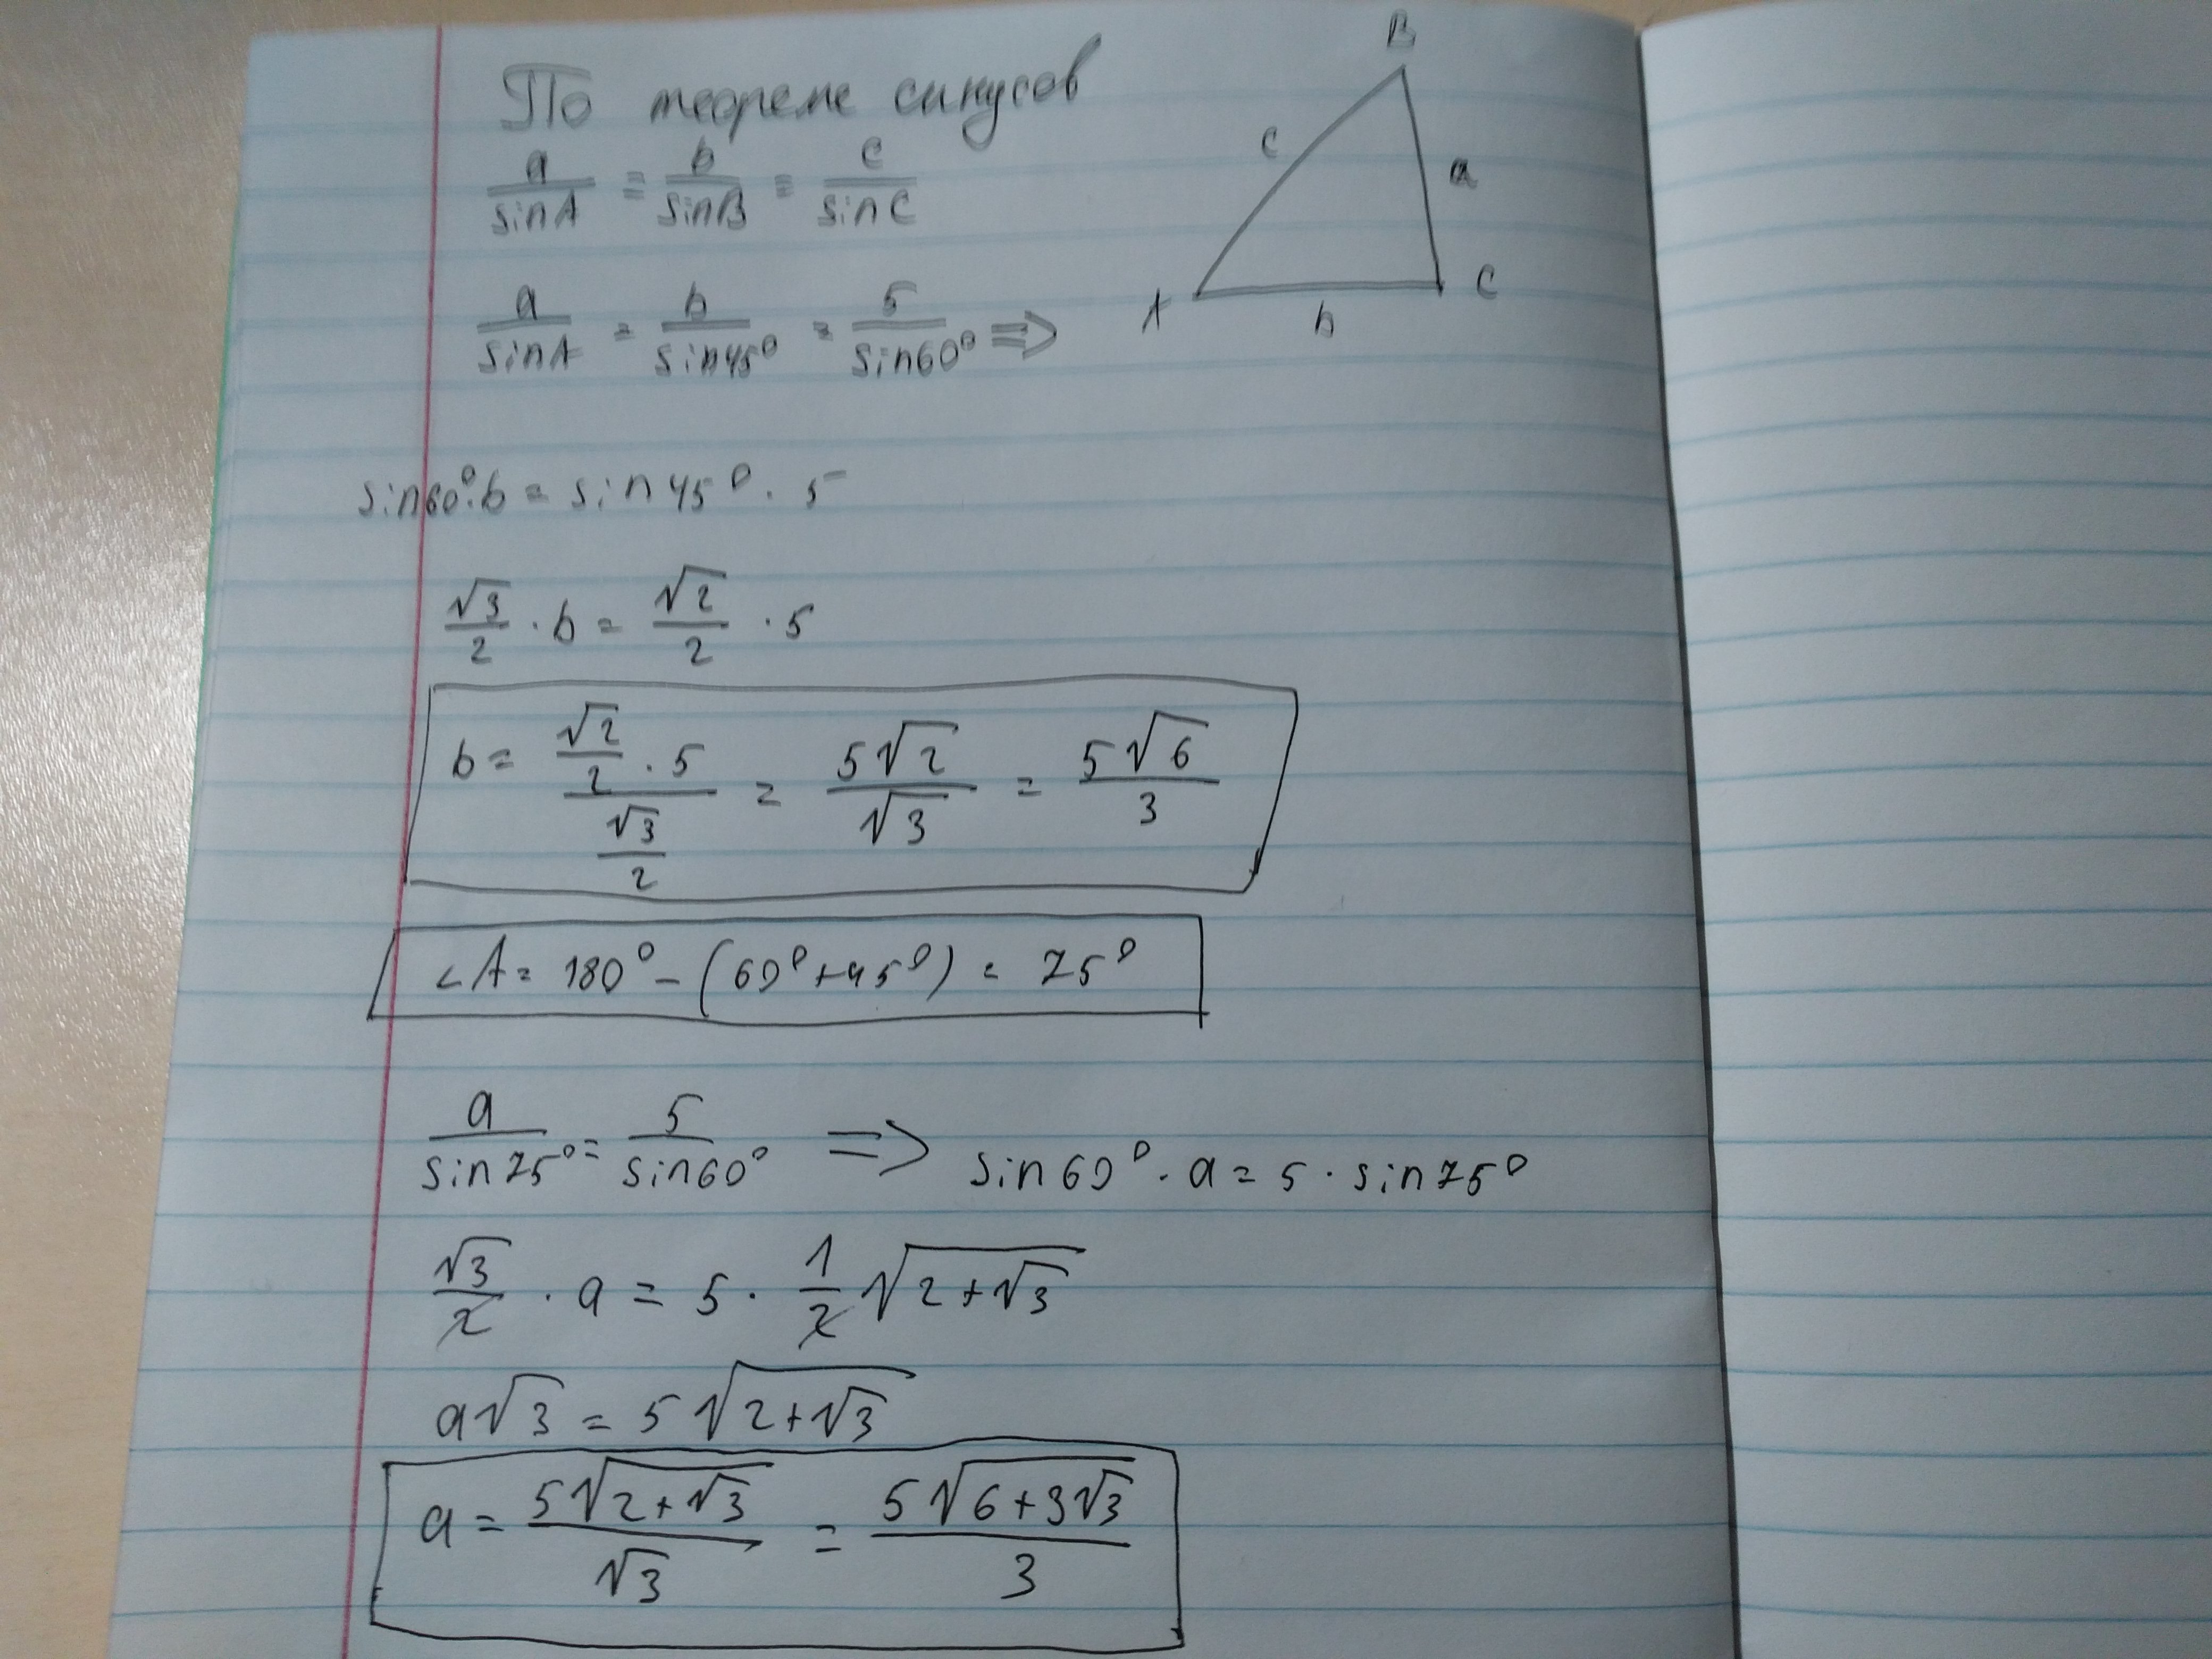 По теореме синусов
a/sinA = b/sinB = c/sinC
B
c
a
A
b
C
a/sinA = b/sin45° = 5/sin60° =>
sin60°·b = sin45°·5
√3/2 · b = √2/2 · 5
b = (√2/2 · 5)/(√3/2) = 5√2/√3 = 5√6/3
∠A = 180° - (60° + 45°) = 75°
a/sin75° = 5/sin60° => sin60° · a = 5 · sin75°
√3/2 · a = 5 · 1/2 √(2+√3)
a√3 = 5√(2+√3)
a = 5√(2+√3)/√3 = 5√(6+3√3)/3